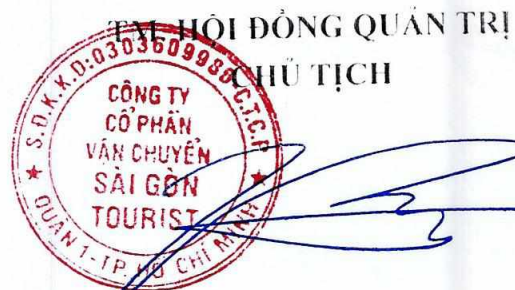 TM. HỘI ĐỒNG QUẢN TRỊ
CHỦ TỊCH
S.Đ.K.K.D:0303609986-C.T.C.P
CÔNG TY
CỔ PHẦN
VẬN CHUYỂN
SÀI GÒN
TOURIST
QUẬN 1-TP. HỒ CHÍ MINH